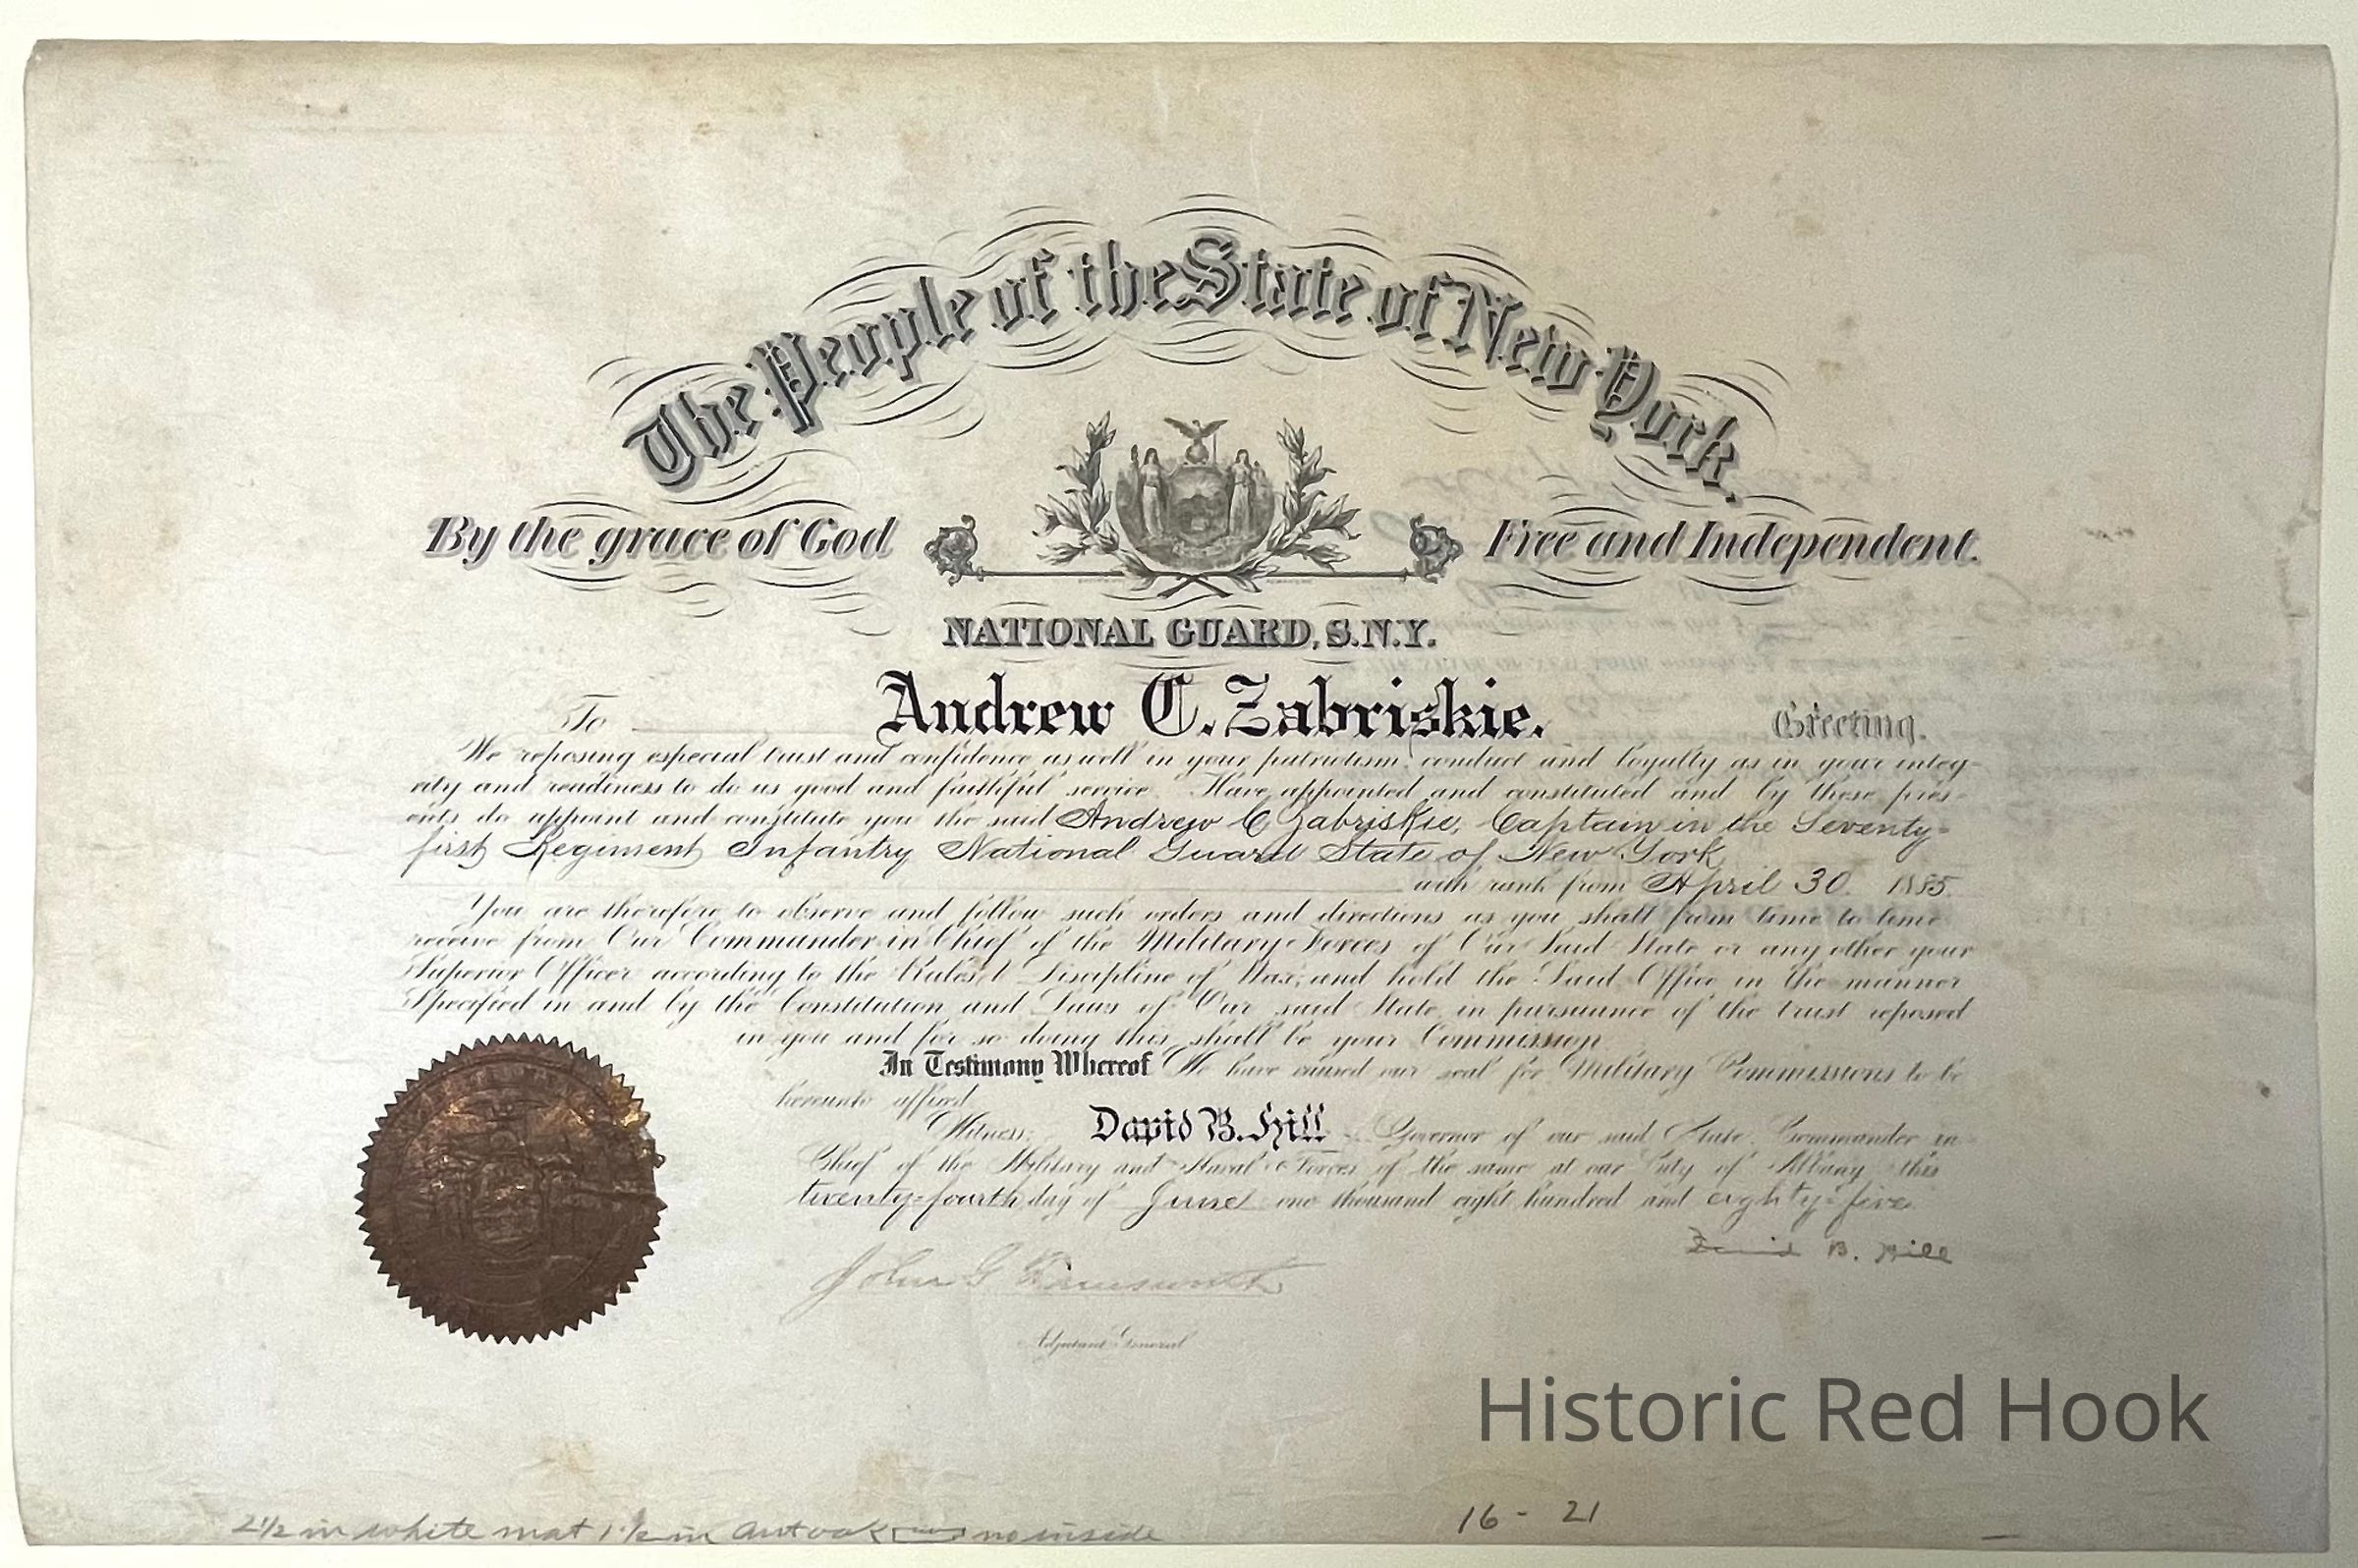 The People of the State of New York.
By the grace of God Free and Independent.
NATIONAL GUARD, S.N.Y.
To Andrew C. Zabriskie. Greeting.
We reposing especial trust and confidence as well in your patriotism, conduct and loyalty as in your integ-
rity and readiness to do us good and faithful service Have appointed and constituted and by these pres-
ents do appoint and constitute you the said Andrew C Zabriskie, Captain in the Seventy-
first Regiment Infantry National Guard State of New York
with rank from April 30. 1885.
You are therefore to observe and follow such orders and directions as you shall from time to time
receive from Our Commander in Chief of the Military Forces of Our Said State or any other your
Superior Officer according to the Rules & Discipline of War; and hold the Said Office in the manner
Specified in and by the Constitution and Laws of Our said State in pursuance of the trust reposed
in you and for so doing this shall be your Commission.
In Testimony Whereof We have caused our seal for Military Commissions to be
hereunto affixed
Witness, David B. Hill Governor of our said State Commander in
Chief of the Military and Naval Forces of the same at our City of Albany this
twenty-fourth day of June one thousand eight hundred and eighty-five
David B. Hill
John G Farnsworth
Adjutant General
Historic Red Hook
16 - 21
2 1/2 in white mat 1 1/2 in no inside